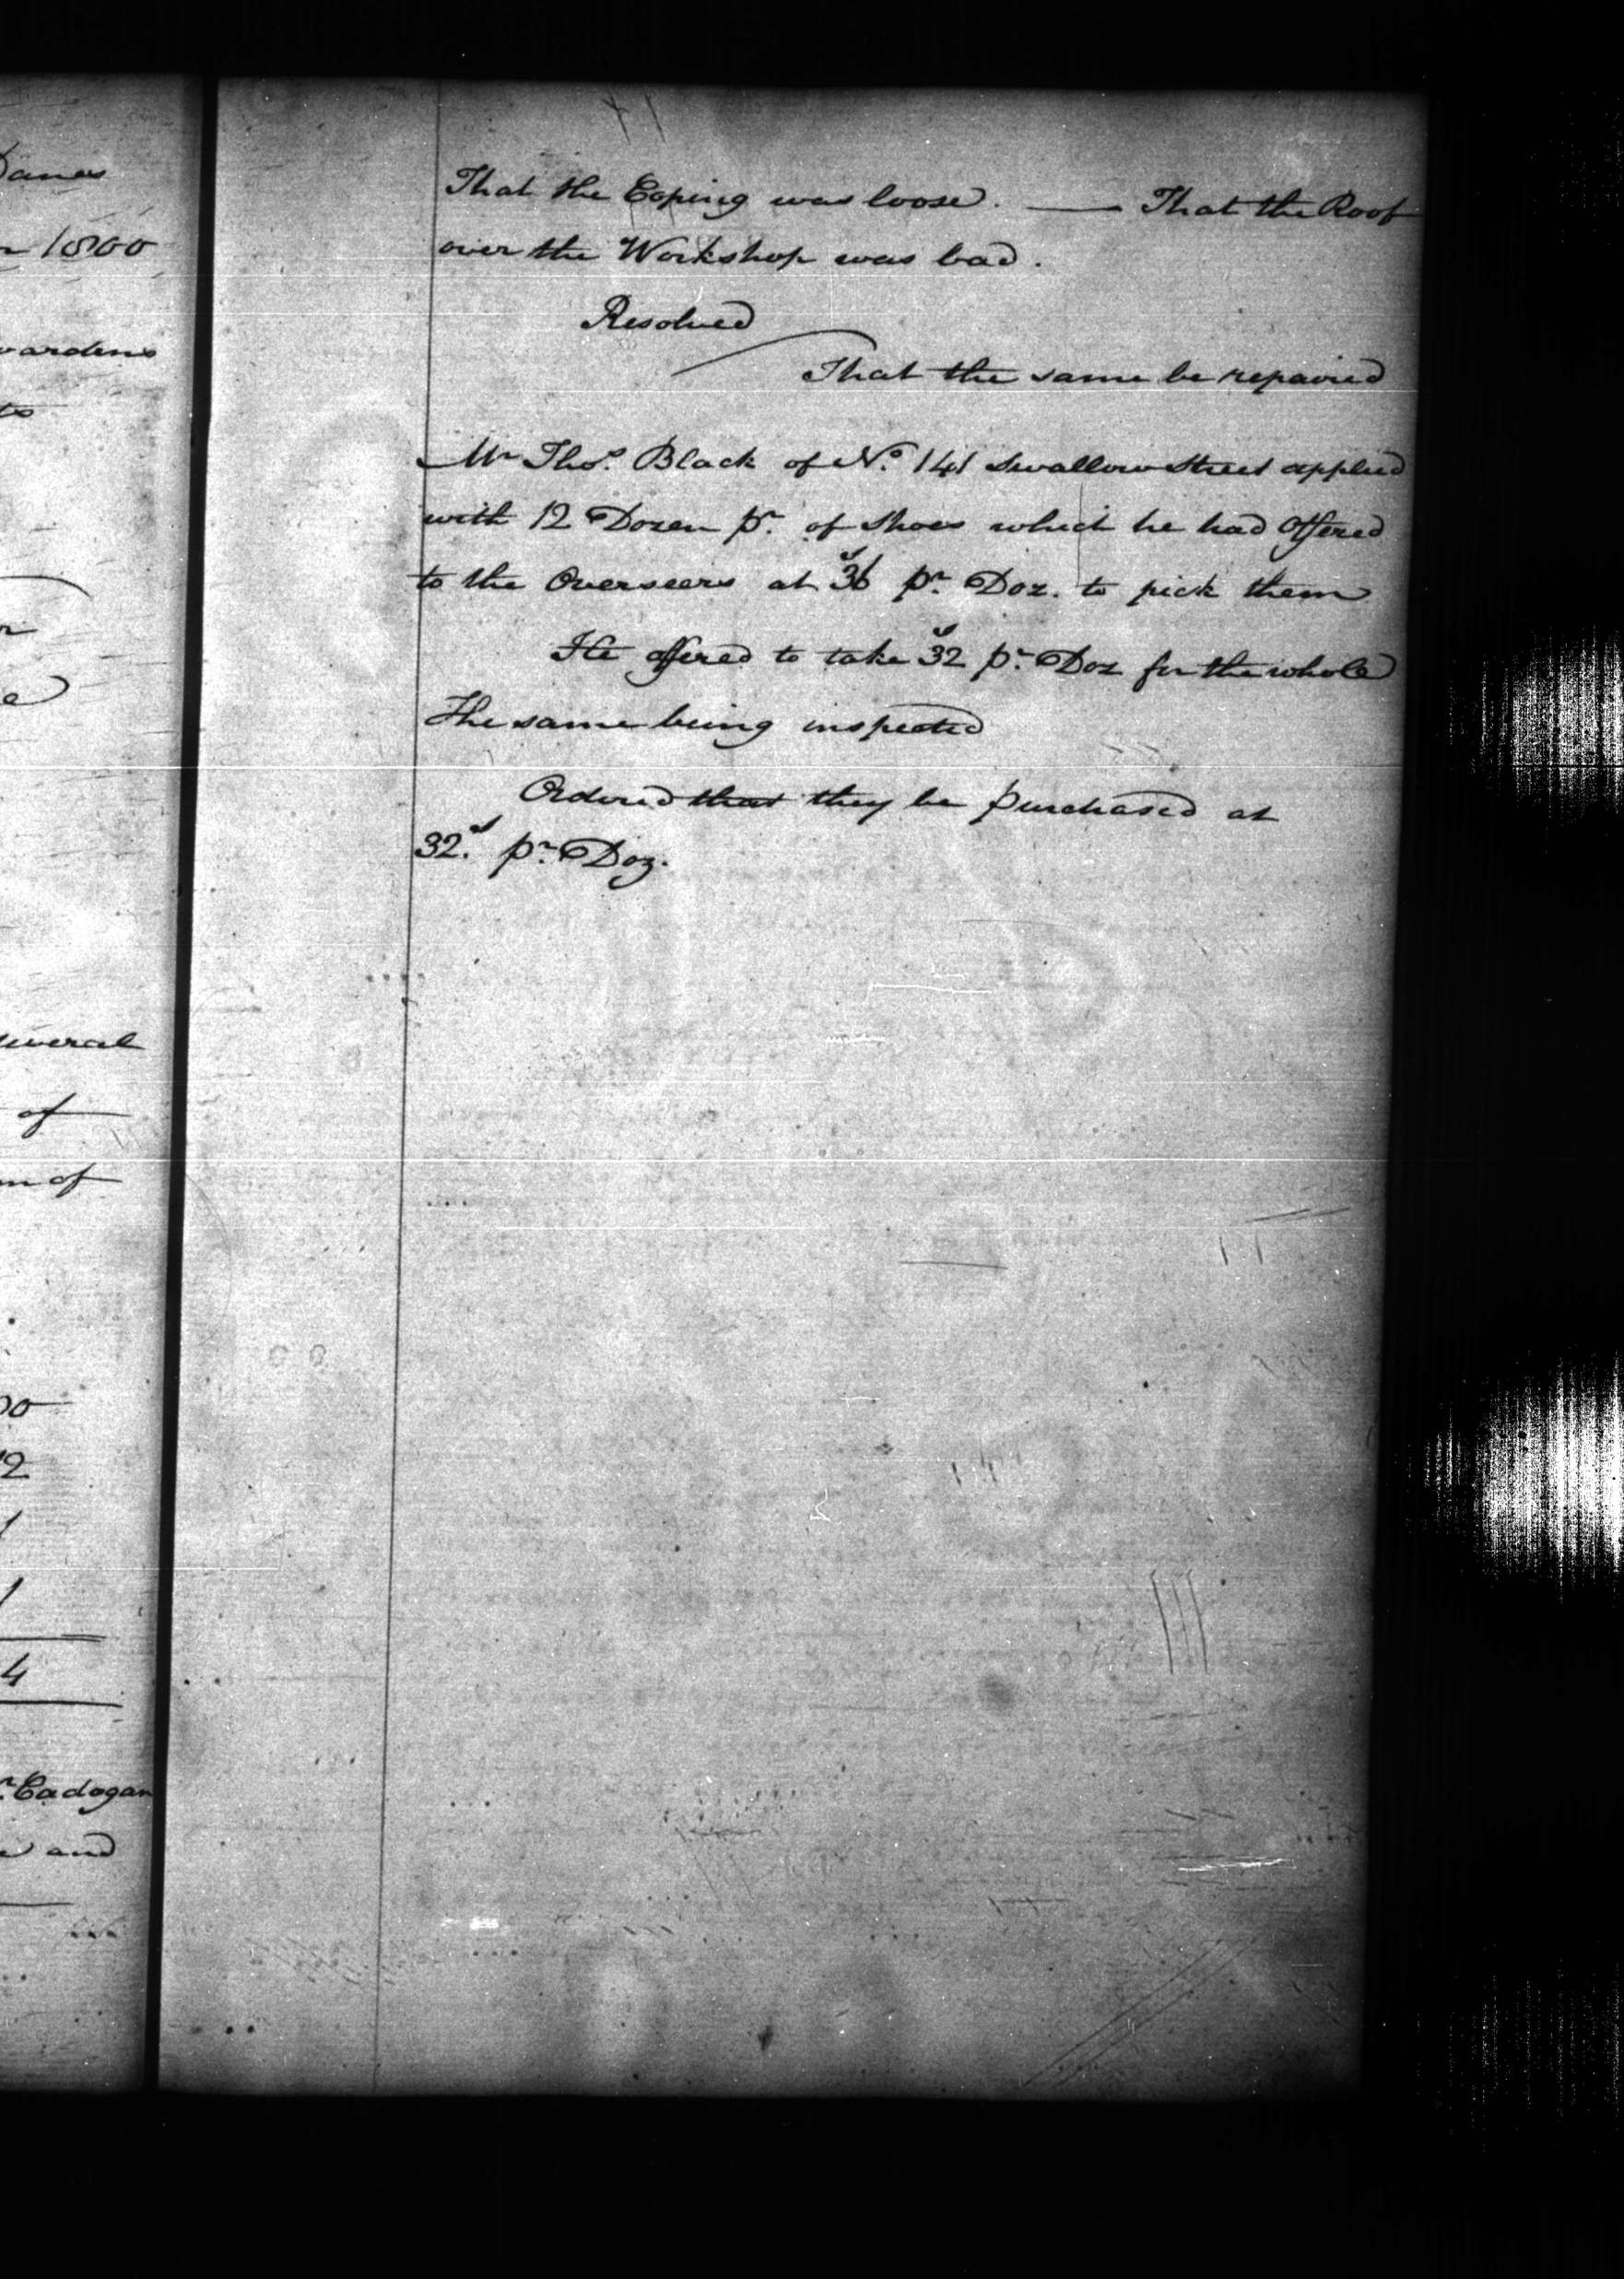 Danes
1800
wardens
several
of
m of
4
Cadogan
and
That the Coping was loose. —— That the Roof
over the Workshop was bad.
Resolved
That the same be repaired
Mr Thos. Black of No. 141 Swallow Street applied
with 12 Dozen pr. of Shoes which he had Offered
to the Overseers at 36s pr. Doz. to pick them
He offered to take 32s pr. Doz for the whole
The same being inspected
Ordered that they be purchased at
32.s pr. Doz.